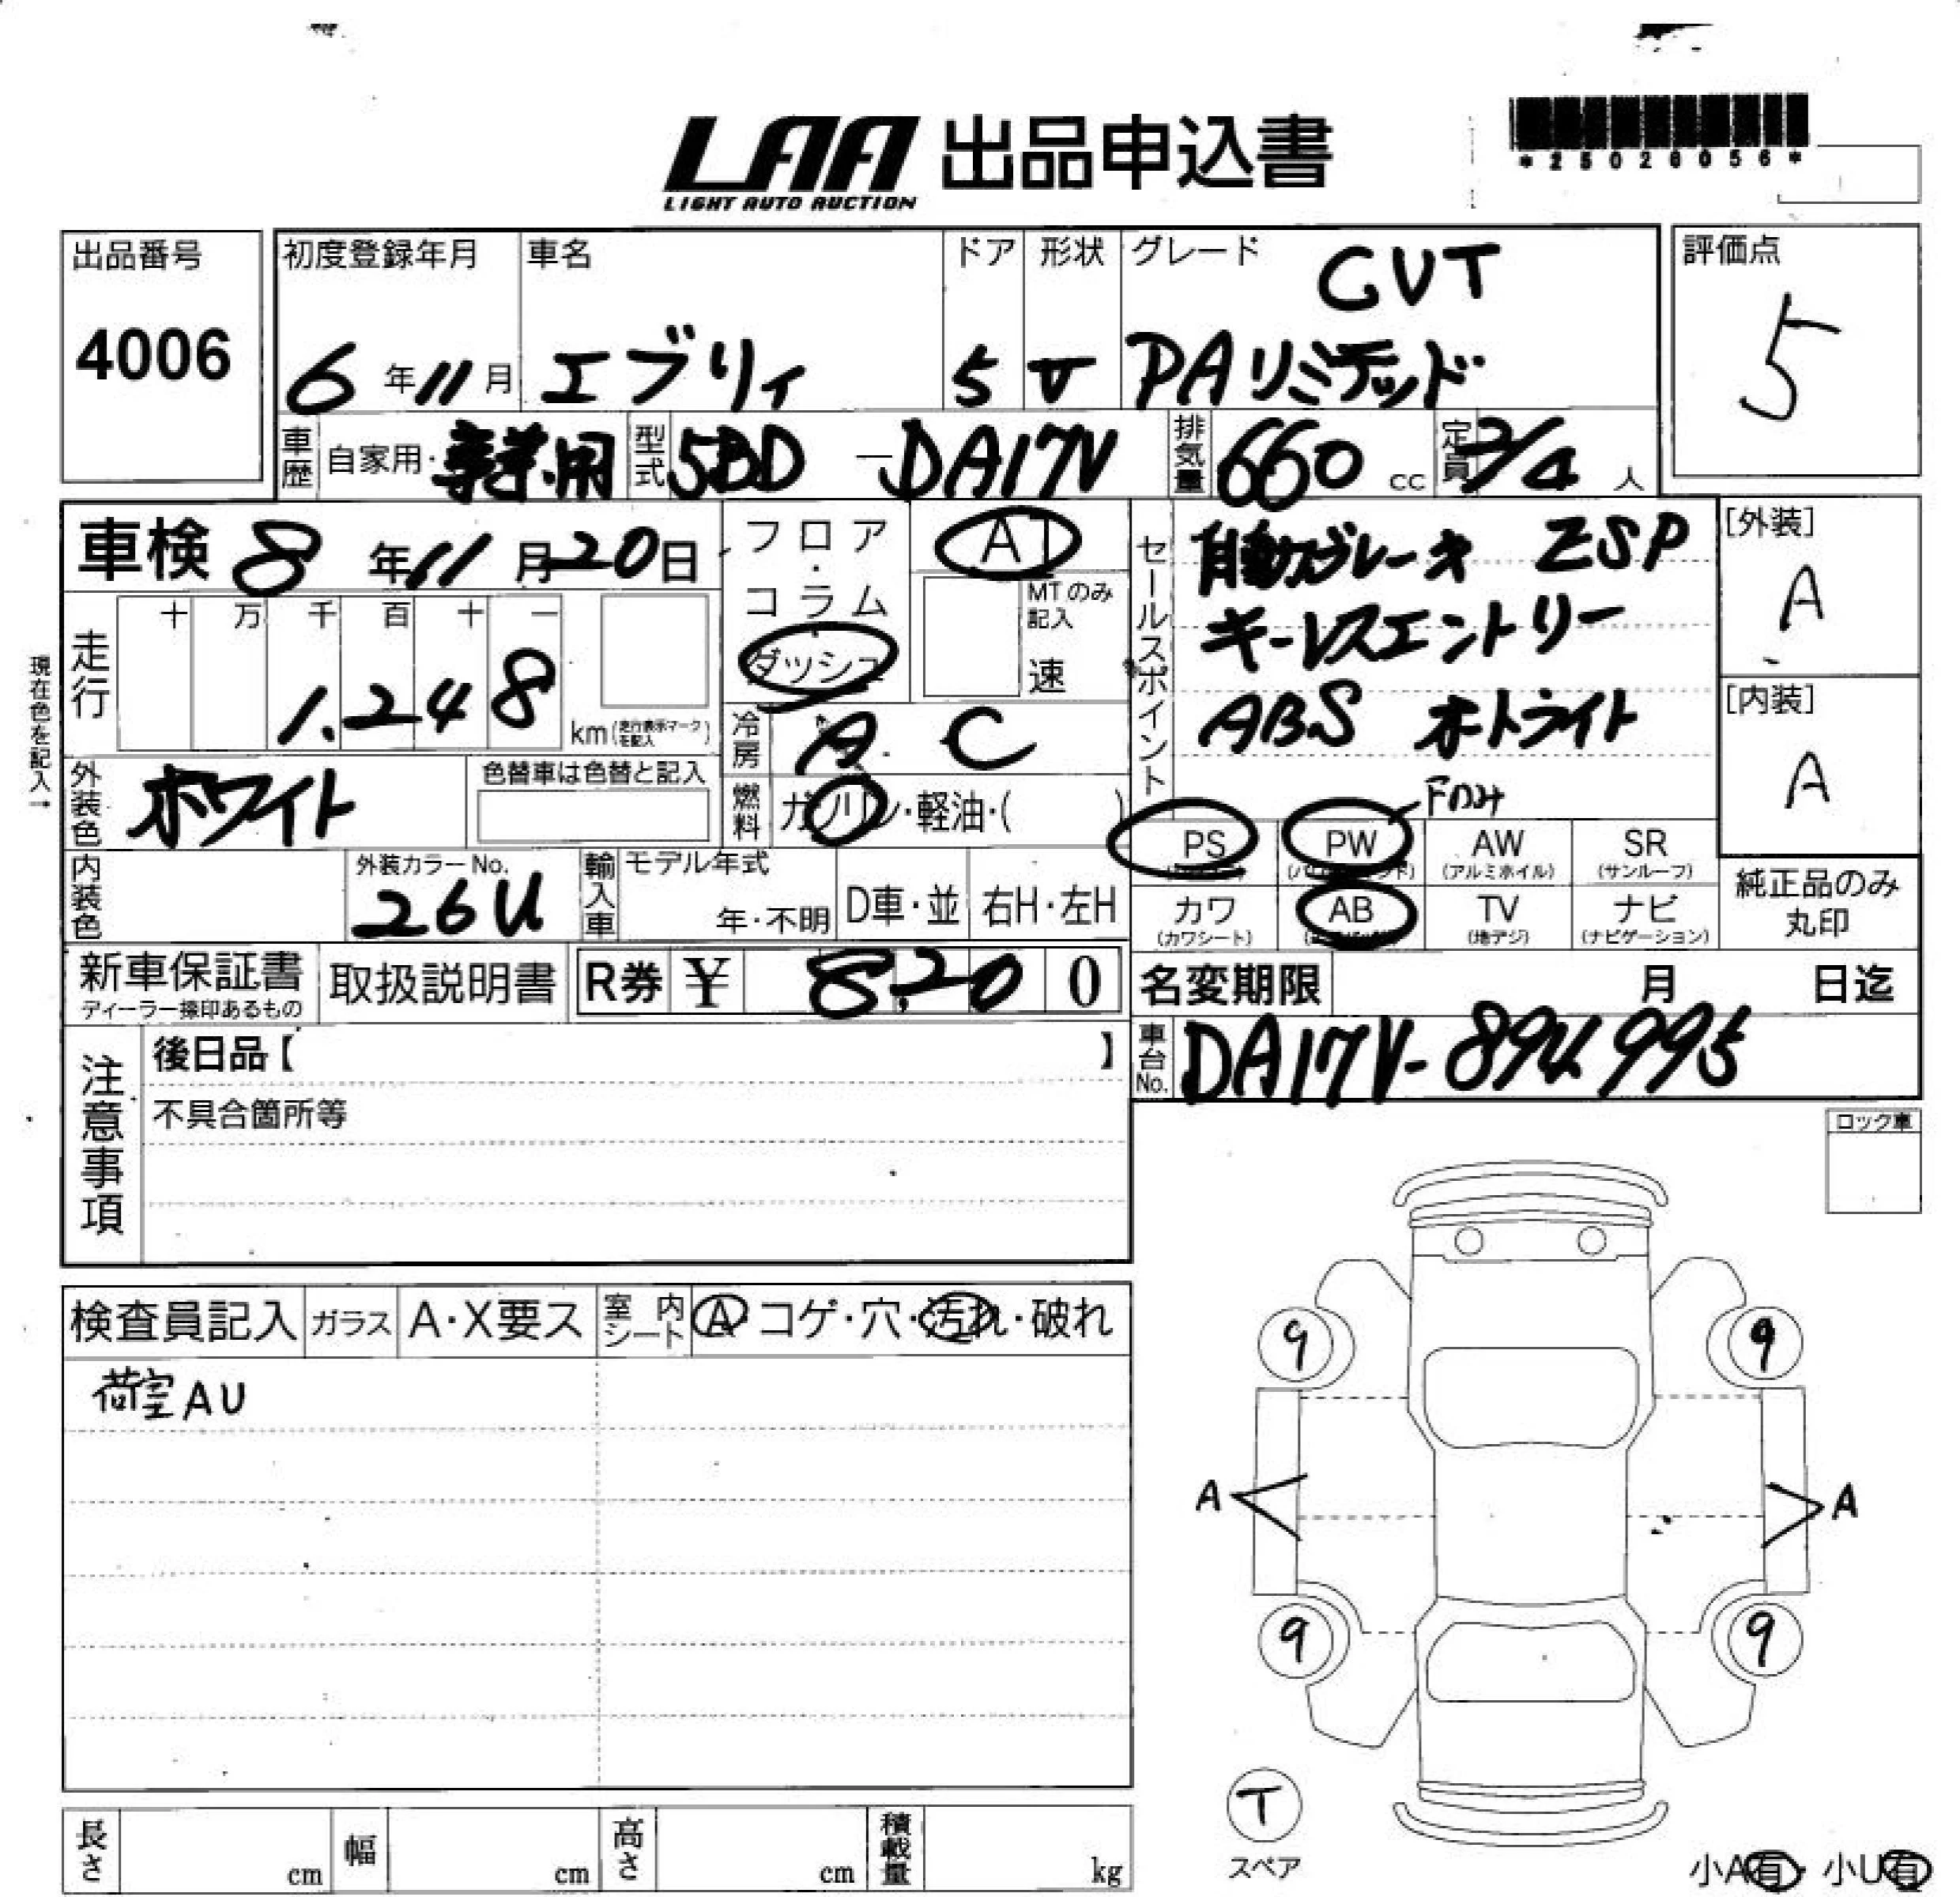 LAA 出品申込書
LIGHT AUTO AUCTION
*25028056*
出品番号
4006
初度登録年月
6年11月
車名
エブリィ
ドア
5
形状
V
グレード
CVT
PAリミテッド
評価点
5
車歴
自家用・事業用
型式
5BD-DA17V
排気量
660cc
定員
2/4人
車検 8年11月20日
フロア・コラム・ダッシュ
AT
MTのみ記入
速
セールスポイント
自動ブレーキ ESP
キーレスエントリー
ABS オートライト
Fのみ
[外装]
A
[内装]
A
現在色を記入→
走行
十 万 千 百 十 一
1.248
km(走行表示マークを記入)
冷房
A.C
燃料
ガソリン・軽油・( )
外装色
ホワイト
色替車は色替と記入
PS
PW
AW
(アルミホイル)
SR
(サンルーフ)
カワ
(カワシート)
AB
TV
(地デジ)
ナビ
(ナビゲーション)
純正品のみ
丸印
内装色
外装カラーNo.
26U
輸入車
モデル年式
年・不明
D車・並
右H・左H
新車保証書
ディーラー捺印あるもの
取扱説明書
R券 ¥ 8,200
名変期限 月 日迄
車台No.
DA17V-894995
注意事項
後日品【 】
不具合箇所等
ロック車
検査員記入
ガラス
A・X要ス
室内シート
A コゲ・穴・汚れ・破れ
荷室AU
9
9
A
A
9
9
T
スペア
長さ cm
幅 cm
高さ cm
積載量 kg
小A有・小U有